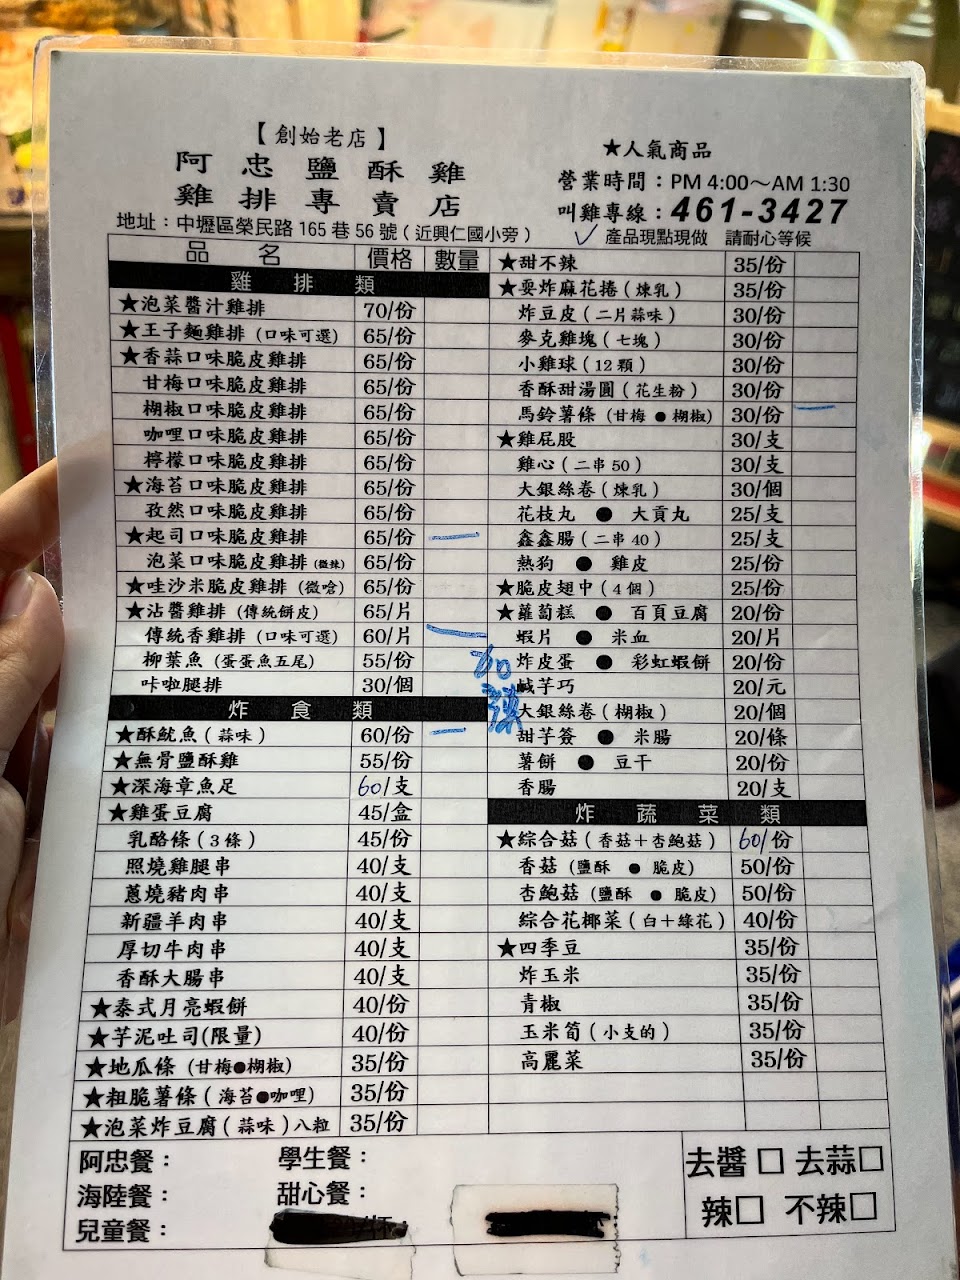 【創始老店】
阿忠鹽酥雞
雞排專賣店
★人氣商品
營業時間：PM 4:00～AM 1:30
叫雞專線：461-3427
地址：中壢區榮民路165巷56號(近興仁國小旁)
✓ 產品現點現做 請耐心等候
品名 價格 數量
雞排類
★泡菜醬汁雞排 70/份
★王子麵雞排(口味可選) 65/份
★香蒜口味脆皮雞排 65/份
甘梅口味脆皮雞排 65/份
椒椒口味脆皮雞排 65/份
咖哩口味脆皮雞排 65/份
檸檬口味脆皮雞排 65/份
★海苔口味脆皮雞排 65/份
孜然口味脆皮雞排 65/份
★起司口味脆皮雞排 65/份 一
泡菜口味脆皮雞排(微辣) 65/份
★哇沙米脆皮雞排(微嗆) 65/份
★沾醬雞排(傳統餅皮) 65/片
傳統香雞排(口味可選) 60/片 一
加辣
柳葉魚(蛋蛋魚五尾) 55/份
咔啦腿排 30/個
炸食類
★酥魷魚(蒜味) 60/份 一
★無骨鹽酥雞 55/份
★深海章魚足 60/支
★雞蛋豆腐 45/盒
乳酪條(3條) 45/份
照燒雞腿串 40/支
蔥燒豬肉串 40/支
新疆羊肉串 40/支
厚切牛肉串 40/支
香酥大腸串 40/支
★泰式月亮蝦餅 40/份
★芋泥吐司(限量) 40/份
★地瓜條(甘梅●椒椒) 35/份
★粗脆薯條(海苔●咖哩) 35/份
★泡菜炸豆腐(蒜味)八粒 35/份
★甜不辣 35/份
★耍炸麻花捲(煉乳) 35/份
炸豆皮(二片蒜味) 30/份
麥克雞塊(七塊) 30/份
小雞球(12顆) 30/份
香酥甜湯圓(花生粉) 30/份
馬鈴薯條(甘梅●椒椒) 30/份 一
★雞屁股 30/支
雞心(二串50) 30/支
大銀絲卷(煉乳) 30/個
花枝丸 ● 大貢丸 25/支
鑫鑫腸(二串40) 25/支
熱狗 ● 雞皮 25/份
★脆皮翅中(4個) 25/份
★蘿蔔糕 ● 百頁豆腐 20/份
蝦片 ● 米血 20/片
炸皮蛋 ● 彩虹蝦餅 20/份
鹹芋巧 20/元
大銀絲卷(椒椒) 20/個
甜芋簽 ● 米腸 20/條
薯餅 ● 豆干 20/份
香腸 20/支
炸蔬菜類
★綜合菇(香菇＋杏鮑菇) 60/份
香菇(鹽酥 ● 脆皮) 50/份
杏鮑菇(鹽酥 ● 脆皮) 50/份
綜合花椰菜(白＋綠花) 40/份
★四季豆 35/份
炸玉米 35/份
青椒 35/份
玉米筍(小支的) 35/份
高麗菜 35/份
阿忠餐： 學生餐：
海陸餐： 甜心餐：
兒童餐：
去醬□ 去蒜□
辣□ 不辣□